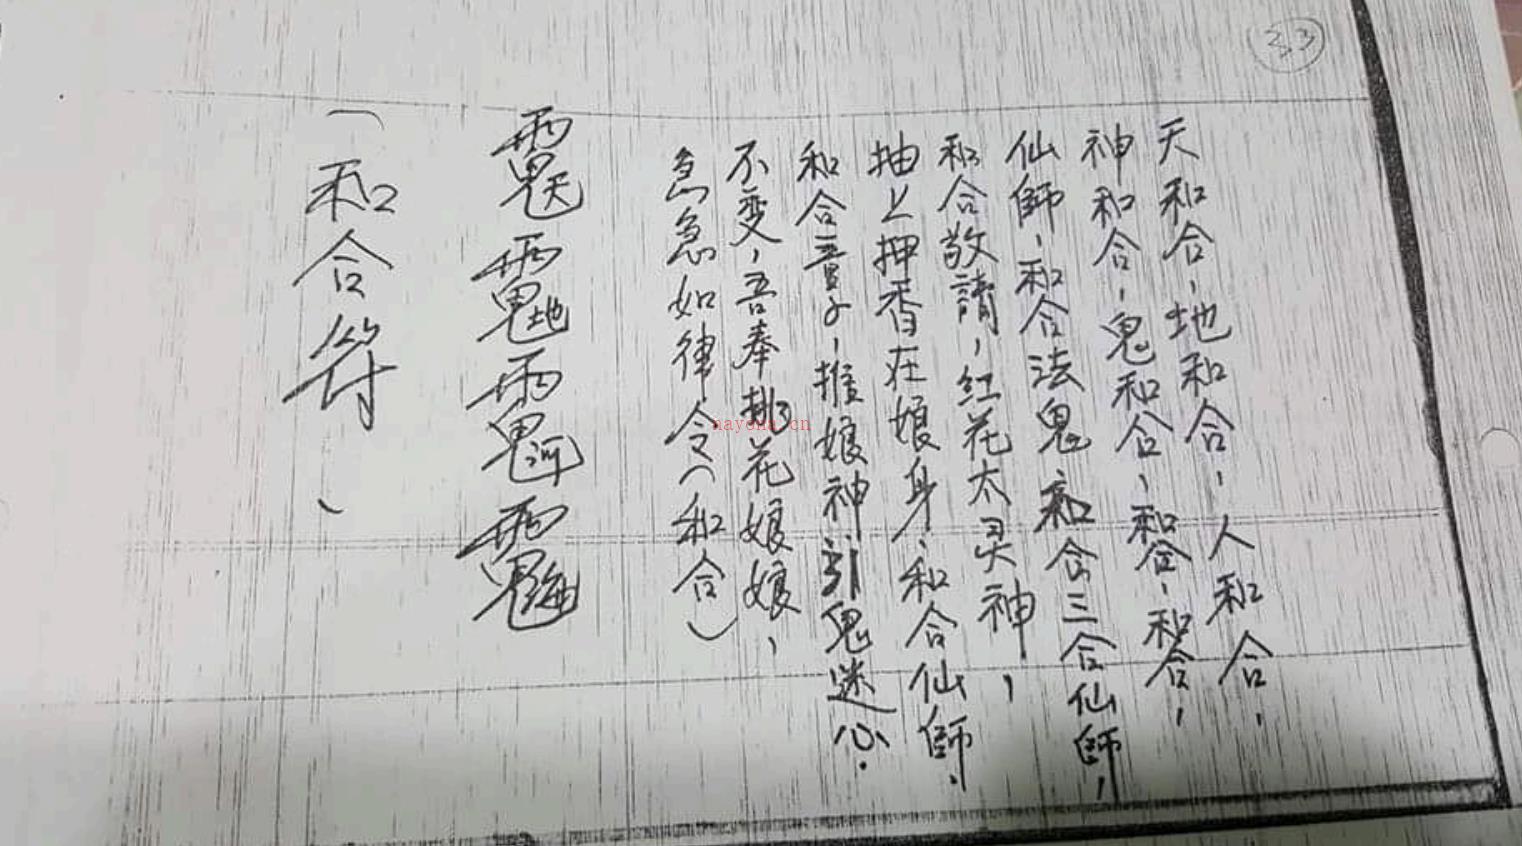 33
天和合，地和合，人和合，
神和合，鬼和合，和合，和合，
仙師，和合法鬼，和合三合仙師，
和合敬請，紅花太灵神，
抽上押香在娘身，和合仙師，
和合童子，推娘神引鬼迷心．
不变，吾奉桃花娘娘，
急急如律令（和合）
（和合符）
nayona.cn